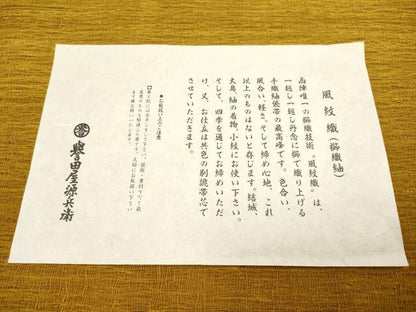 風紋織(櫛織紬)
西陣唯一の櫛織技術“風紋織”は、
一越し一越し丹念に櫛で織り上げる
手織紬低帯の最高峰です。色合い、
風合い、軽さ、そして締め心地、これ
以上のものはないと存じます。結城、
大島、紬の着物、小紋にお使い下さい。
そして、四季を通じてお締めいただ
け、又、お仕立は共色の別誂帯芯で
させていただきます。
●お取扱い上のご注意
譽田屋源兵衛